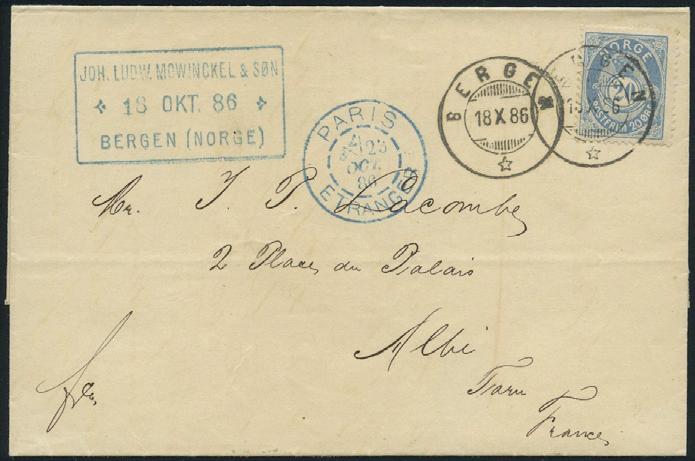 JOH. LUDW. MOWINCKEL & SØN
18 OKT. 86
BERGEN (NORGE)
PARIS
23
OCT
86
ETRANGER
BERGEN
18 X 86
BERGEN
18 X 86
NORGE
20
POSTFRIM 20 ØRE
Mr. J. P. Lacombe
2 Place du Palais
Albi
Tarn
France